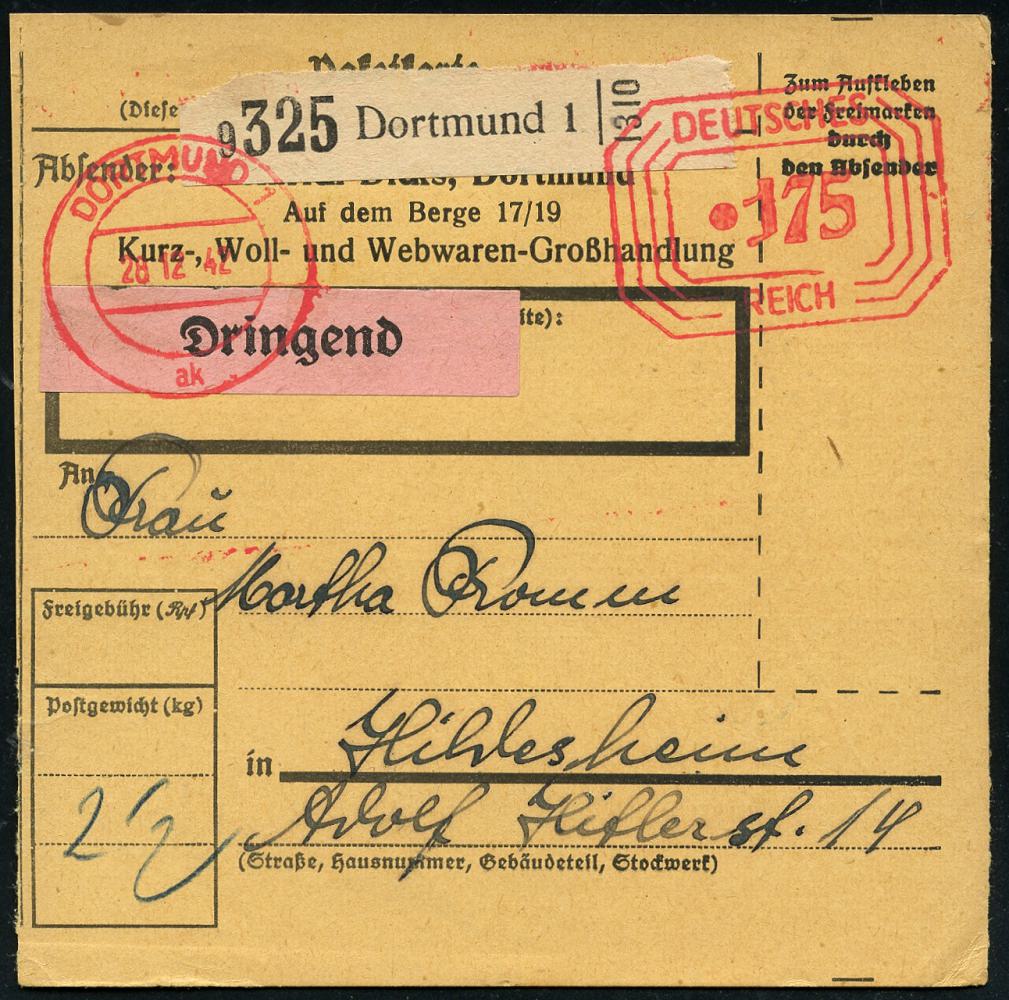 Paketkarte
(Diese
9325 Dortmund 1
1310
Zum Aufkleben
der Freimarken
durch
den Absender
DEUTSCHES
175
REICH
Absender:
Dortmund
Auf dem Berge 17/19
Kurz-, Woll- und Webwaren-Großhandlung
DORTMUND 1
28 12 42
ak
Dringend
ite):
An
Frau
Martha Fromm
Freigebühr (Rpf)
Postgewicht (kg)
in Hildesheim
Adolf Hitlerst. 14
(Straße, Hausnummer, Gebäudeteil, Stockwerk)